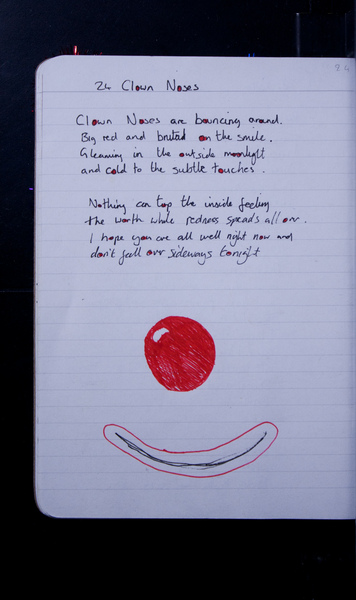 24
24 Clown Noses
Clown Noses are bouncing around.
Big red and on the smile.
Gleaming in the outside moonlight
and cold to the subtle touches.
Nothing can top the inside feeling
the worth while redness spreads all over.
I hope you are all well right now and
don't fall over sideways tonight